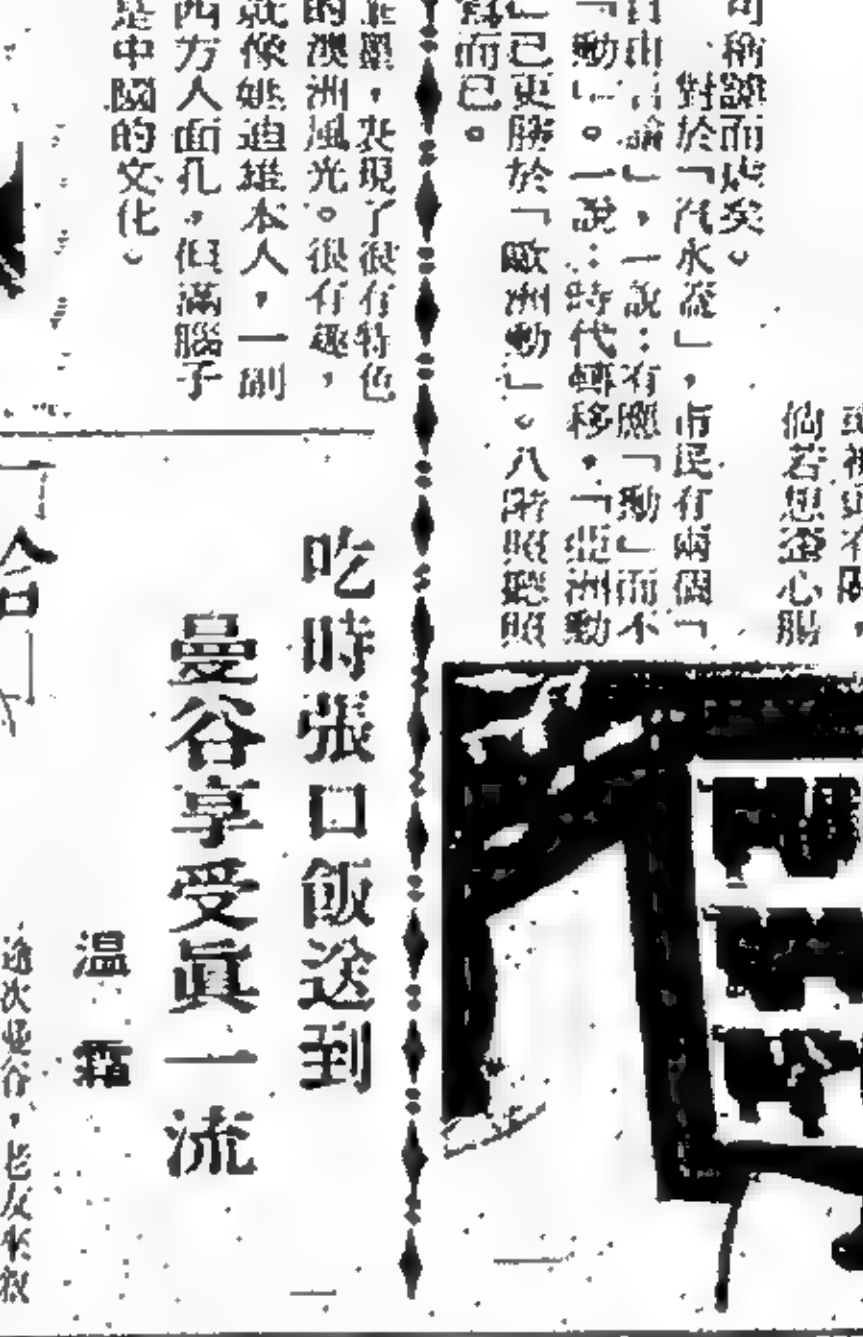 或
倘若想盜心腸
可稱謔而虐矣。
對於「汽水盃」,市民有兩個「
自由言論」,一說:有應「動」而不
「動」。一說:時代轉移,「亞洲動
」已更勝於「歐洲動」。八階照聽照
寫而已。
,表現了很有特色
的澳洲風光。很有趣,
就像姚迪雄本人,一副
西方人面孔,但滿腦子
是中國的文化。
吃時張口飯送到
曼谷享受眞一流
溫 霜
這次曼谷,老友來叙